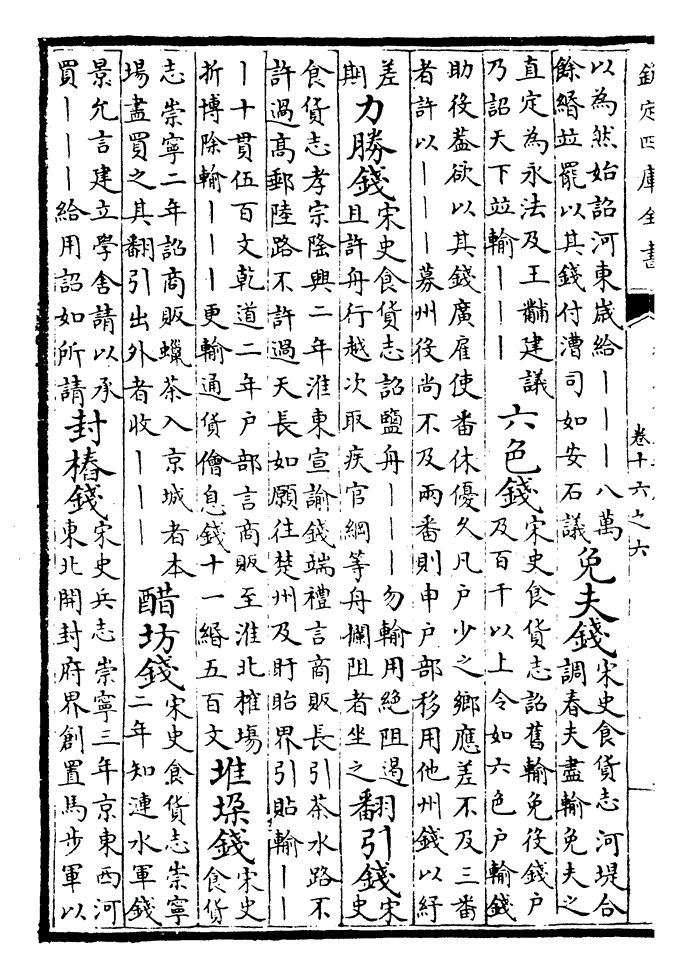 欽定四庫全書
卷十六之六
以為然始詔河東歲給———八萬
餘緡並罷以其錢付漕司如安石議
免夫錢
宋史食貨志河堤合
調春夫盡輸免夫之
直定為永法及王黼建議
乃詔天下並輸———
六色錢
宋史食貨志詔舊輸免役錢戶
及百千以上令如六色戶輸錢
助役蓋欲以其錢廣雇使番休優久凡戶少之鄉應差不及三番
者許以———募州役尚不及兩番則申戶部移用他州錢以紓
差
期
力勝錢
宋史食貨志詔鹽舟———勿輸用絕阻遏
且許舟行越次取疾官綱等舟攔阻者坐之
翻引錢
宋
史
食貨志孝宗隆興二年淮東宣諭錢端禮言商販長引茶水路不
許過高郵陸路不許過天長如願往楚州及盱眙界引貼輸——
—十貫伍百文乾道二年戶部言商販至淮北榷場
折博除輸———更輸通貨儈息錢十一緡五百文
堆垜錢
宋史
食貨
志崇寧二年詔商販蠟茶入京城者本
場盡買之其翻引出外者收———
醋坊錢
宋史食貨志崇寧
二年知漣水軍錢
景允言建立學舍請以承
買———給用詔如所請
封樁錢
宋史兵志崇寧三年京東西河
東北開封府界創置馬步軍以